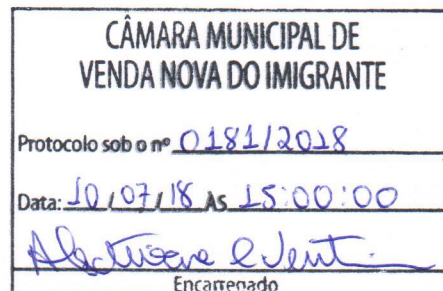 CÂMARA MUNICIPAL DE
VENDA NOVA DO IMIGRANTE
Protocolo sob o nº 0181/2018
Data: 10/07/18 ÀS 15:00:00
Encarregado